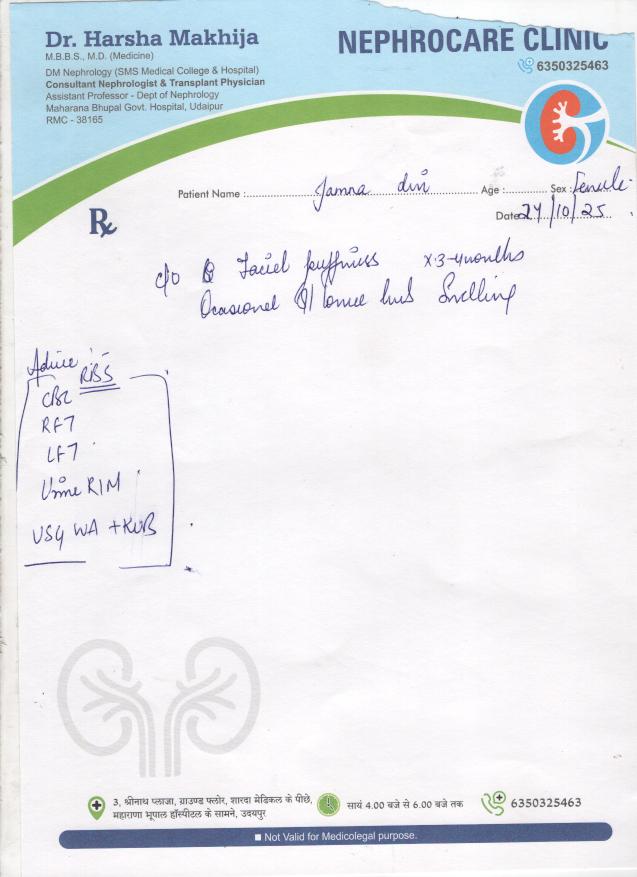 Dr. Harsha Makhija
M.B.B.S., M.D. (Medicine)
DM Nephrology (SMS Medical College & Hospital)
Consultant Nephrologist & Transplant Physician
Assistant Professor - Dept of Nephrology
Maharana Bhupal Govt. Hospital, Udaipur
RMC - 38165
NEPHROCARE CLINIC
6350325463
Patient Name : Jamna devi Age : Sex : Female
Date 24/10/25
Rx
c/o Facial puffiness x 3-4 months
Ocasional B/l lower limb Swelling
Advice :-
RBS
CBC
RFT
LFT
Urine R/M
USG WA + KUB
3, श्रीनाथ प्लाजा, ग्राउण्ड फ्लोर, शारदा मेडिकल के पीछे,
महाराणा भूपाल हॉस्पीटल के सामने, उदयपुर
सायं 4.00 बजे से 6.00 बजे तक
6350325463
Not Valid for Medicolegal purpose.